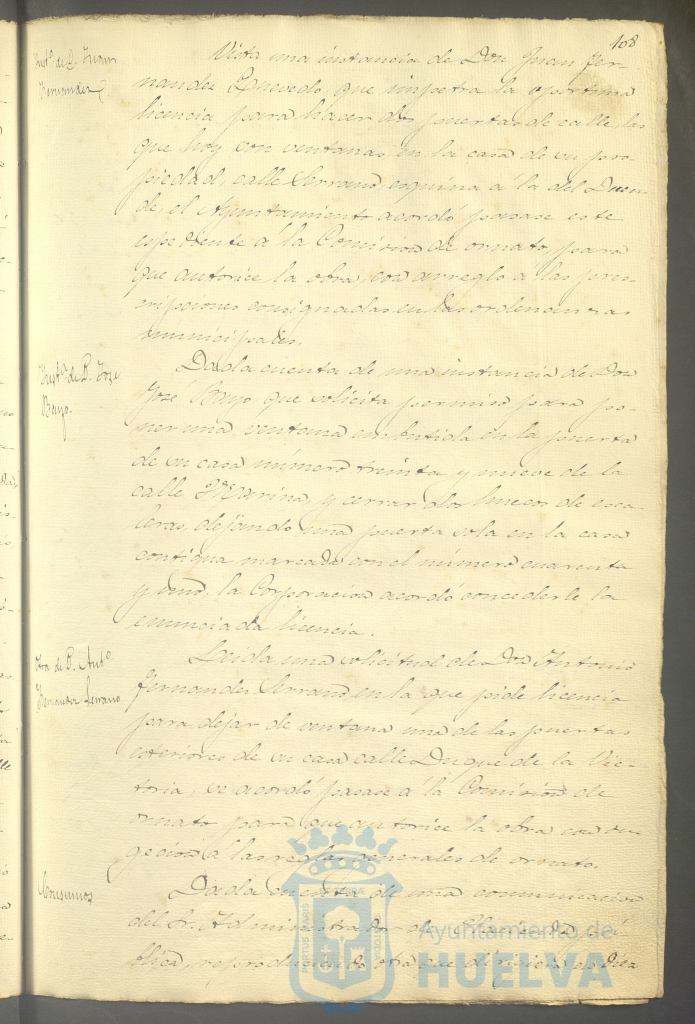 108
Inst.ª de D. Juan
Fernandez
Vista una instancia de Don Juan Fer-
nandez Quevedo, que impetra la oportuna
licencia para hacer dos puertas de calle, las
que hoy son ventanas en la casa de su pro-
piedad, calle Serrano, esquina á la del Duen-
de, el Ayuntamiento acordó pasase este
espediente á la Comision de ornato, para
que autorice la obra, con arreglo á las pres-
cripciones consignadas en las ordenanzas
municipales.
Inst.ª de D. José
Bayo.
Dada cuenta de una instancia de Don
José Bayo, que solicita permiso para po-
ner una ventana embutida en la puerta
de su casa número treinta y nueve de la
calle Marina, y cerrar dos huecos de esca-
leras, dejando una puerta sola en la casa
contigua marcada con el número cuarenta
y uno, la Corporacion acordó concederle la
enunciada licencia.
Otra de D. Ant.º
Fernandez Serrano
Leida una solicitud de Don Antonio
Fernandez Serrano en la que pide licencia
para dejar de ventana una de las puertas
esteriores de su casa calle Duque de la Vic-
toria, se acordó pasase á la Comision de
ornato para que autorice la obra con su-
gecion á las reglas generales de ornato.
Consumos
Dada cuenta de una comunicacion
del Sr. Administrador de Hacienda pú-
blica, reproduciendo otra que dirigiera en diez
PORTUS MARIS
Ayuntamiento de
HUELVA